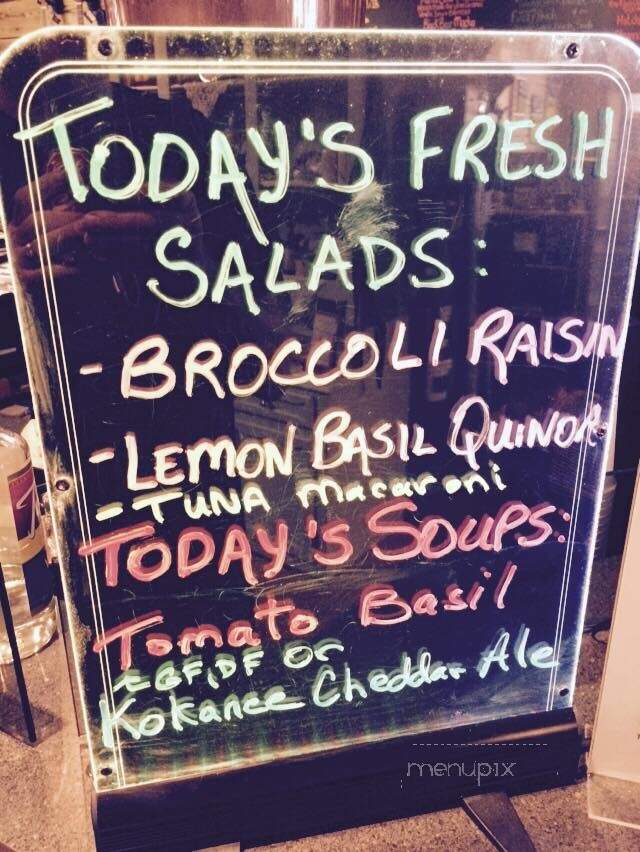 TODAY'S FRESH
SALADS:
- BROCCOLI RAISIN
- LEMON BASIL QUINOA
- TUNA macaroni
TODAY'S SOUPS:
Tomato Basil
GF, DF or
Kokanee Cheddar Ale
menupix